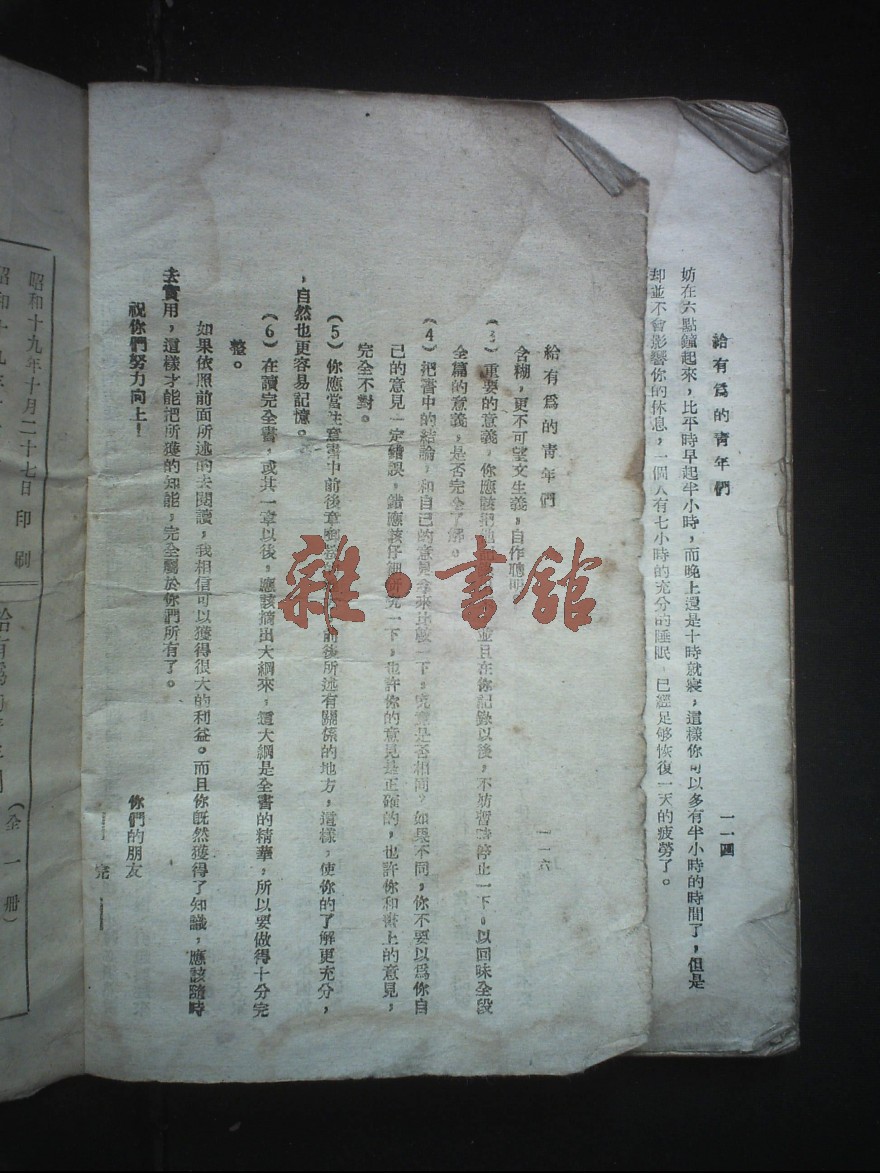 給有爲的青年們
一一四
妨在六點鐘起來，比平時早起半小時，而晚上還是十時就寢，這樣你可以多有半小時的時間了，但是
却並不會影響你的休息，一個人有七小時的充分的睡眠，已經足够恢復一天的疲勞了。
給有爲的青年們
一一六
含糊，更不可望文生義，自作聰明
（3）重要的意義，你應該把他 並且在你記錄以後，不妨暫時停止一下，以回味全段
全篇的意義，是否完全了解。
（4）把書中的結論，和自己的意見拿來比較一下，究竟是否相同？如果不同，你不要以爲你自
己的意見一定錯誤，錯應該仔細研究一下，也許你的意見是正確的，也許你和書上的意見，
完全不對。
（5）你應當注意書中前後章 前後所述有關係的地方，這樣，使你的了解更充分，
，自然也更容易記憶。
（6）在讀完全書，或其一章以後，應該摘出大綱來，這大綱是全書的精華，所以要做得十分完
整。
如果依照前面所述的去閱讀，我相信可以獲得很大的利益。而且你旣然獲得了知識，應該隨時
去實用，這樣才能把所獲的知能，完全屬於你們所有了。
祝你們努力向上！
你們的朋友
完
昭和十九年十月二十七日印刷
昭和十九年十
給有爲的青年們（全一册）
雜·書館